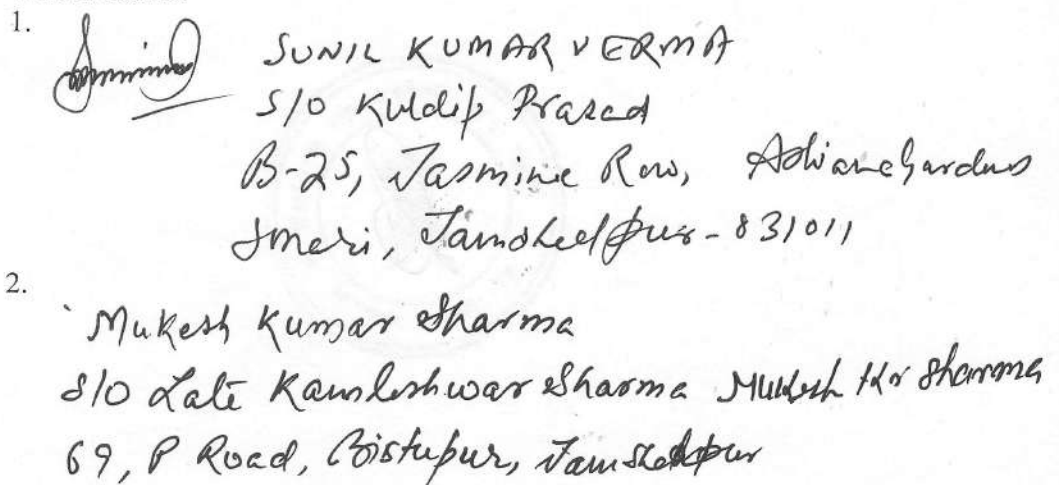 1.
SUNIL KUMAR VERMA
S/O Kuldip Prasad
B-25, Jasmine Row, Ashiana Gardens
Sonari, Jamshedpur - 831011
2.
Mukesh Kumar Sharma
S/O Late Kamleshwar Sharma Mukesh Kr Sharma
69, P Road, Bistupur, Jamshedpur